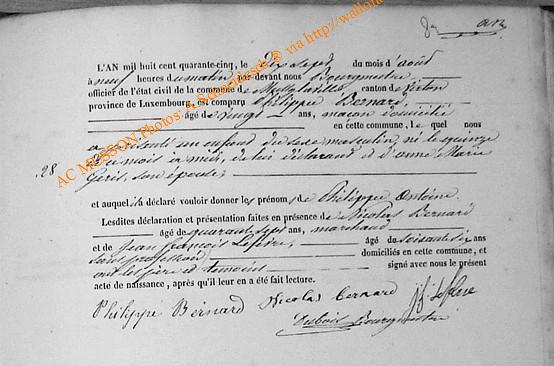 L'AN mil huit cent quarante-cinq, le Dix Sept du mois d'août
à neuf heures du matin par-devant nous Bourgmestre
officier de l'état civil de la commune de canton de Virton
province de Luxembourg, est comparu Philippe Bernard,
âgé de vingt ans, maçon domicilié
en cette commune, le quel nous
a présenté un enfant du sexe masculin, né le quinze
du mois à midi, de lui déclarant et d'anne Marie
son épouse,
28
et auquel il a déclaré vouloir donner les prénoms de Philippe Antoine.
Lesdites déclaration et présentation faites en présence de Nicolas Bernard
âgé de quarante sept ans, marchand
et de Jean françois âgé de soixante six ans
sans profession domiciliés en cette commune, et
ont les père et témoins signé avec nous le présent
acte de naissance, après qu'il leur en a été fait lecture.
Philippe Bernard Nicolas bernard
Dubois Bourgmestre
AC MUSSON Photos: A. http://wallonia